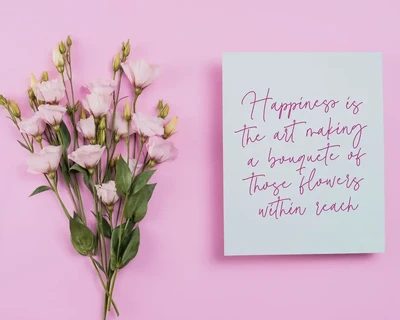 Happiness is
the art making
a bouquete of
those flowers
within reach